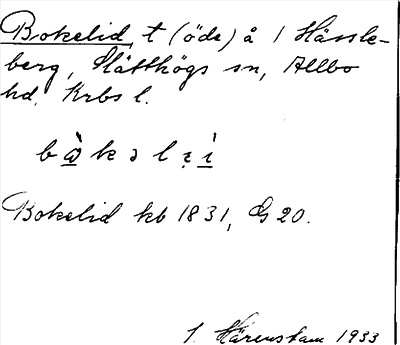 Bokelid, t (öde) å 1 Hässle-
berg, Slätthögs sn, Allbo
hd, Krbs l.
Bokelid kb 1831, G 20.
1. Härenstam 1933